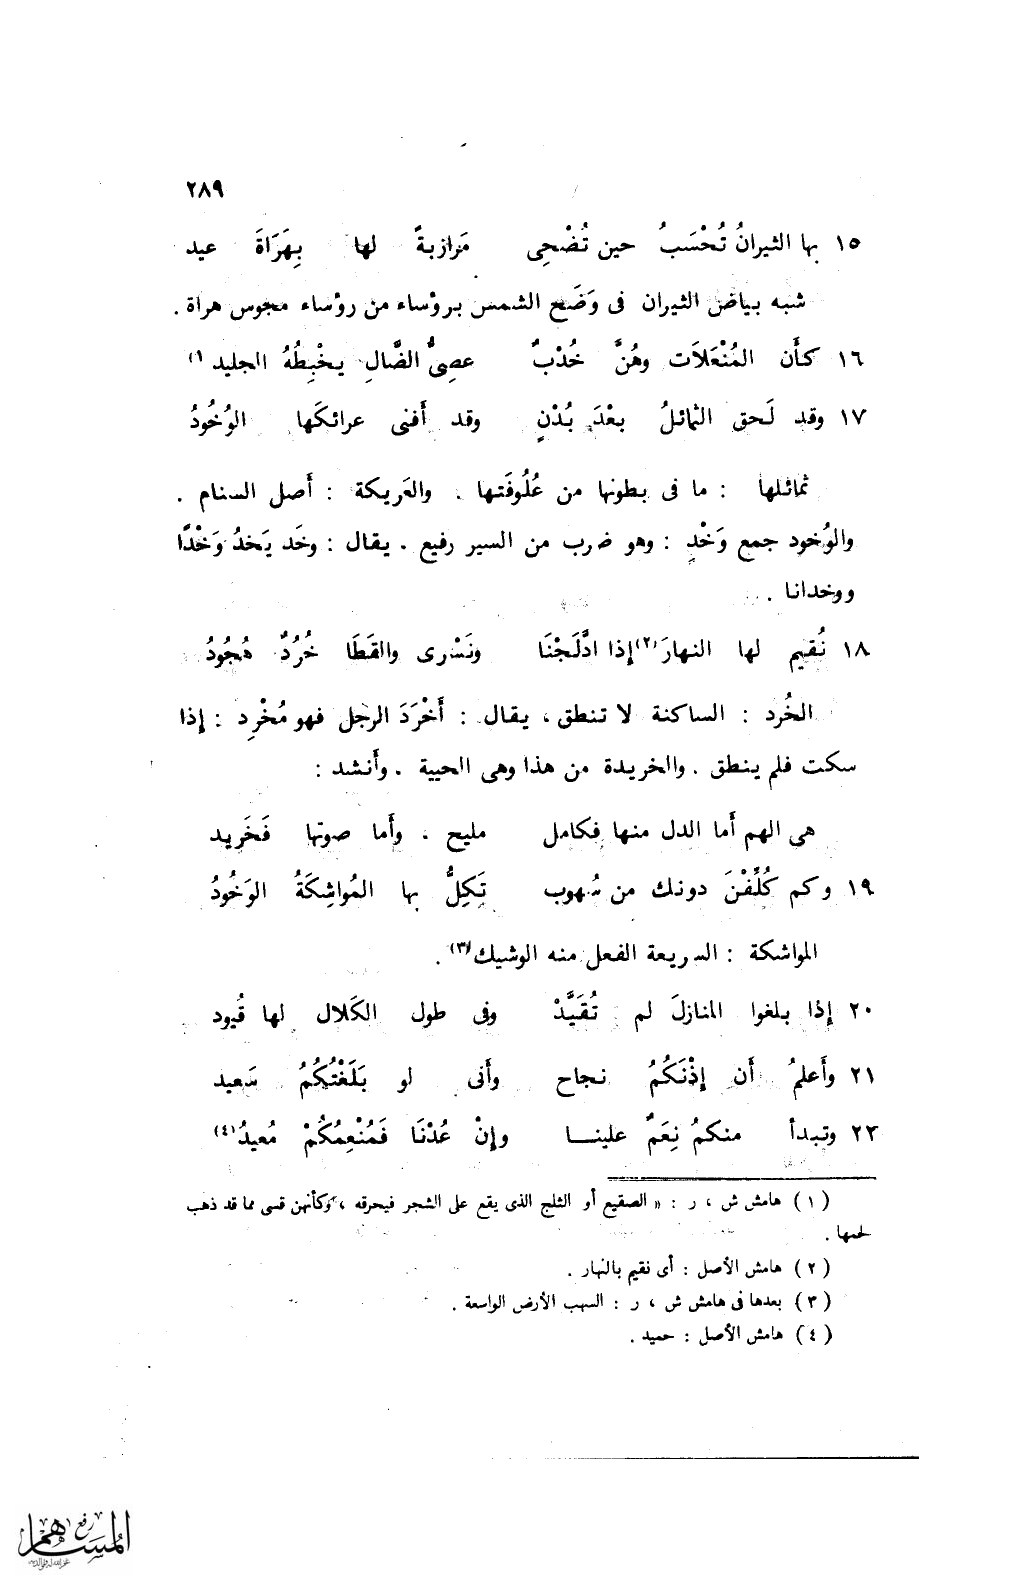 ٢٨٩
١٥ بها الثيرانُ تُحْسَبُ حين تُضْحِى مَرازبةً لها بِهَرَاةَ عيد
شبه بياض الثيران فى وَضَح الشمس برؤساء من رؤساء مجوس هراة .
١٦ كأَن المُنْعَلاَت وهُنَّ خُدْبٌ عصِىُّ الضَّالِ يخْبِطُهُ الجليد (١)
١٧ وقد لَحق الثمائلُ بعْدَ بُدْنٍ وقد أَفنى عرائكَها الوُخُودُ
ثمائلها : ما فى بطونها من عُلُوفَتها . والعَريكة : أَصل السنام .
والوُخود جمع وَخْدٍ : وهو ضرب من السير رفيع . يقال : وخَد يَخدُ وَخْدًا
ووخدانا .
١٨ نُقيم لها النهارَ (٢) إذا ادَّلَجْنَا ونَسْرى والقَطَا خُرُدٌ هُجُودُ
الخُرد : الساكنة لا تنطق ، يقال : أَخْرَدَ الرجل فهو مُخْرِد : إذا
سكت فلم ينطق . والخريدة من هذا وهى الحيية . وأَنشد :
هى الهم أَما الدل منها فكامل مليح ، وأَما صوتها فَخَرِيد
١٩ وكم كُلِّفْنَ دونك من سُهوب تَكِلُّ بها المُواشِكَةُ الوَخُودُ
المواشكة : السريعة الفعل منه الوشيك (٣) .
٢٠ إذا بلغوا المنازلَ لم تُقَيَّدْ وفى طول الكَلال لها قُيود
٢١ وأَعلمُ أَن إذْنَكُمُ نجاح وأَنى لو بَلَغْتُكُمُ سَعيد
٢٣ وتبدأ منكمُ نِعَمٌ علينا وإنْ عُدْنَا فَمُنْعِمُكُمْ مُعيدُ (٤)
( ١ ) هامش ش ، ر : « الصقيع أو الثلج الذى يقع على الشجر فيحرقه ، وكأنهن قسى مما قد ذهب
لحمها .
( ٢ ) هامش الأصل : أى نقيم بالنهار .
( ٣ ) بعدها فى هامش ش ، ر : السهب الأرض الواسعة .
( ٤ ) هامش الأصل : حميد .